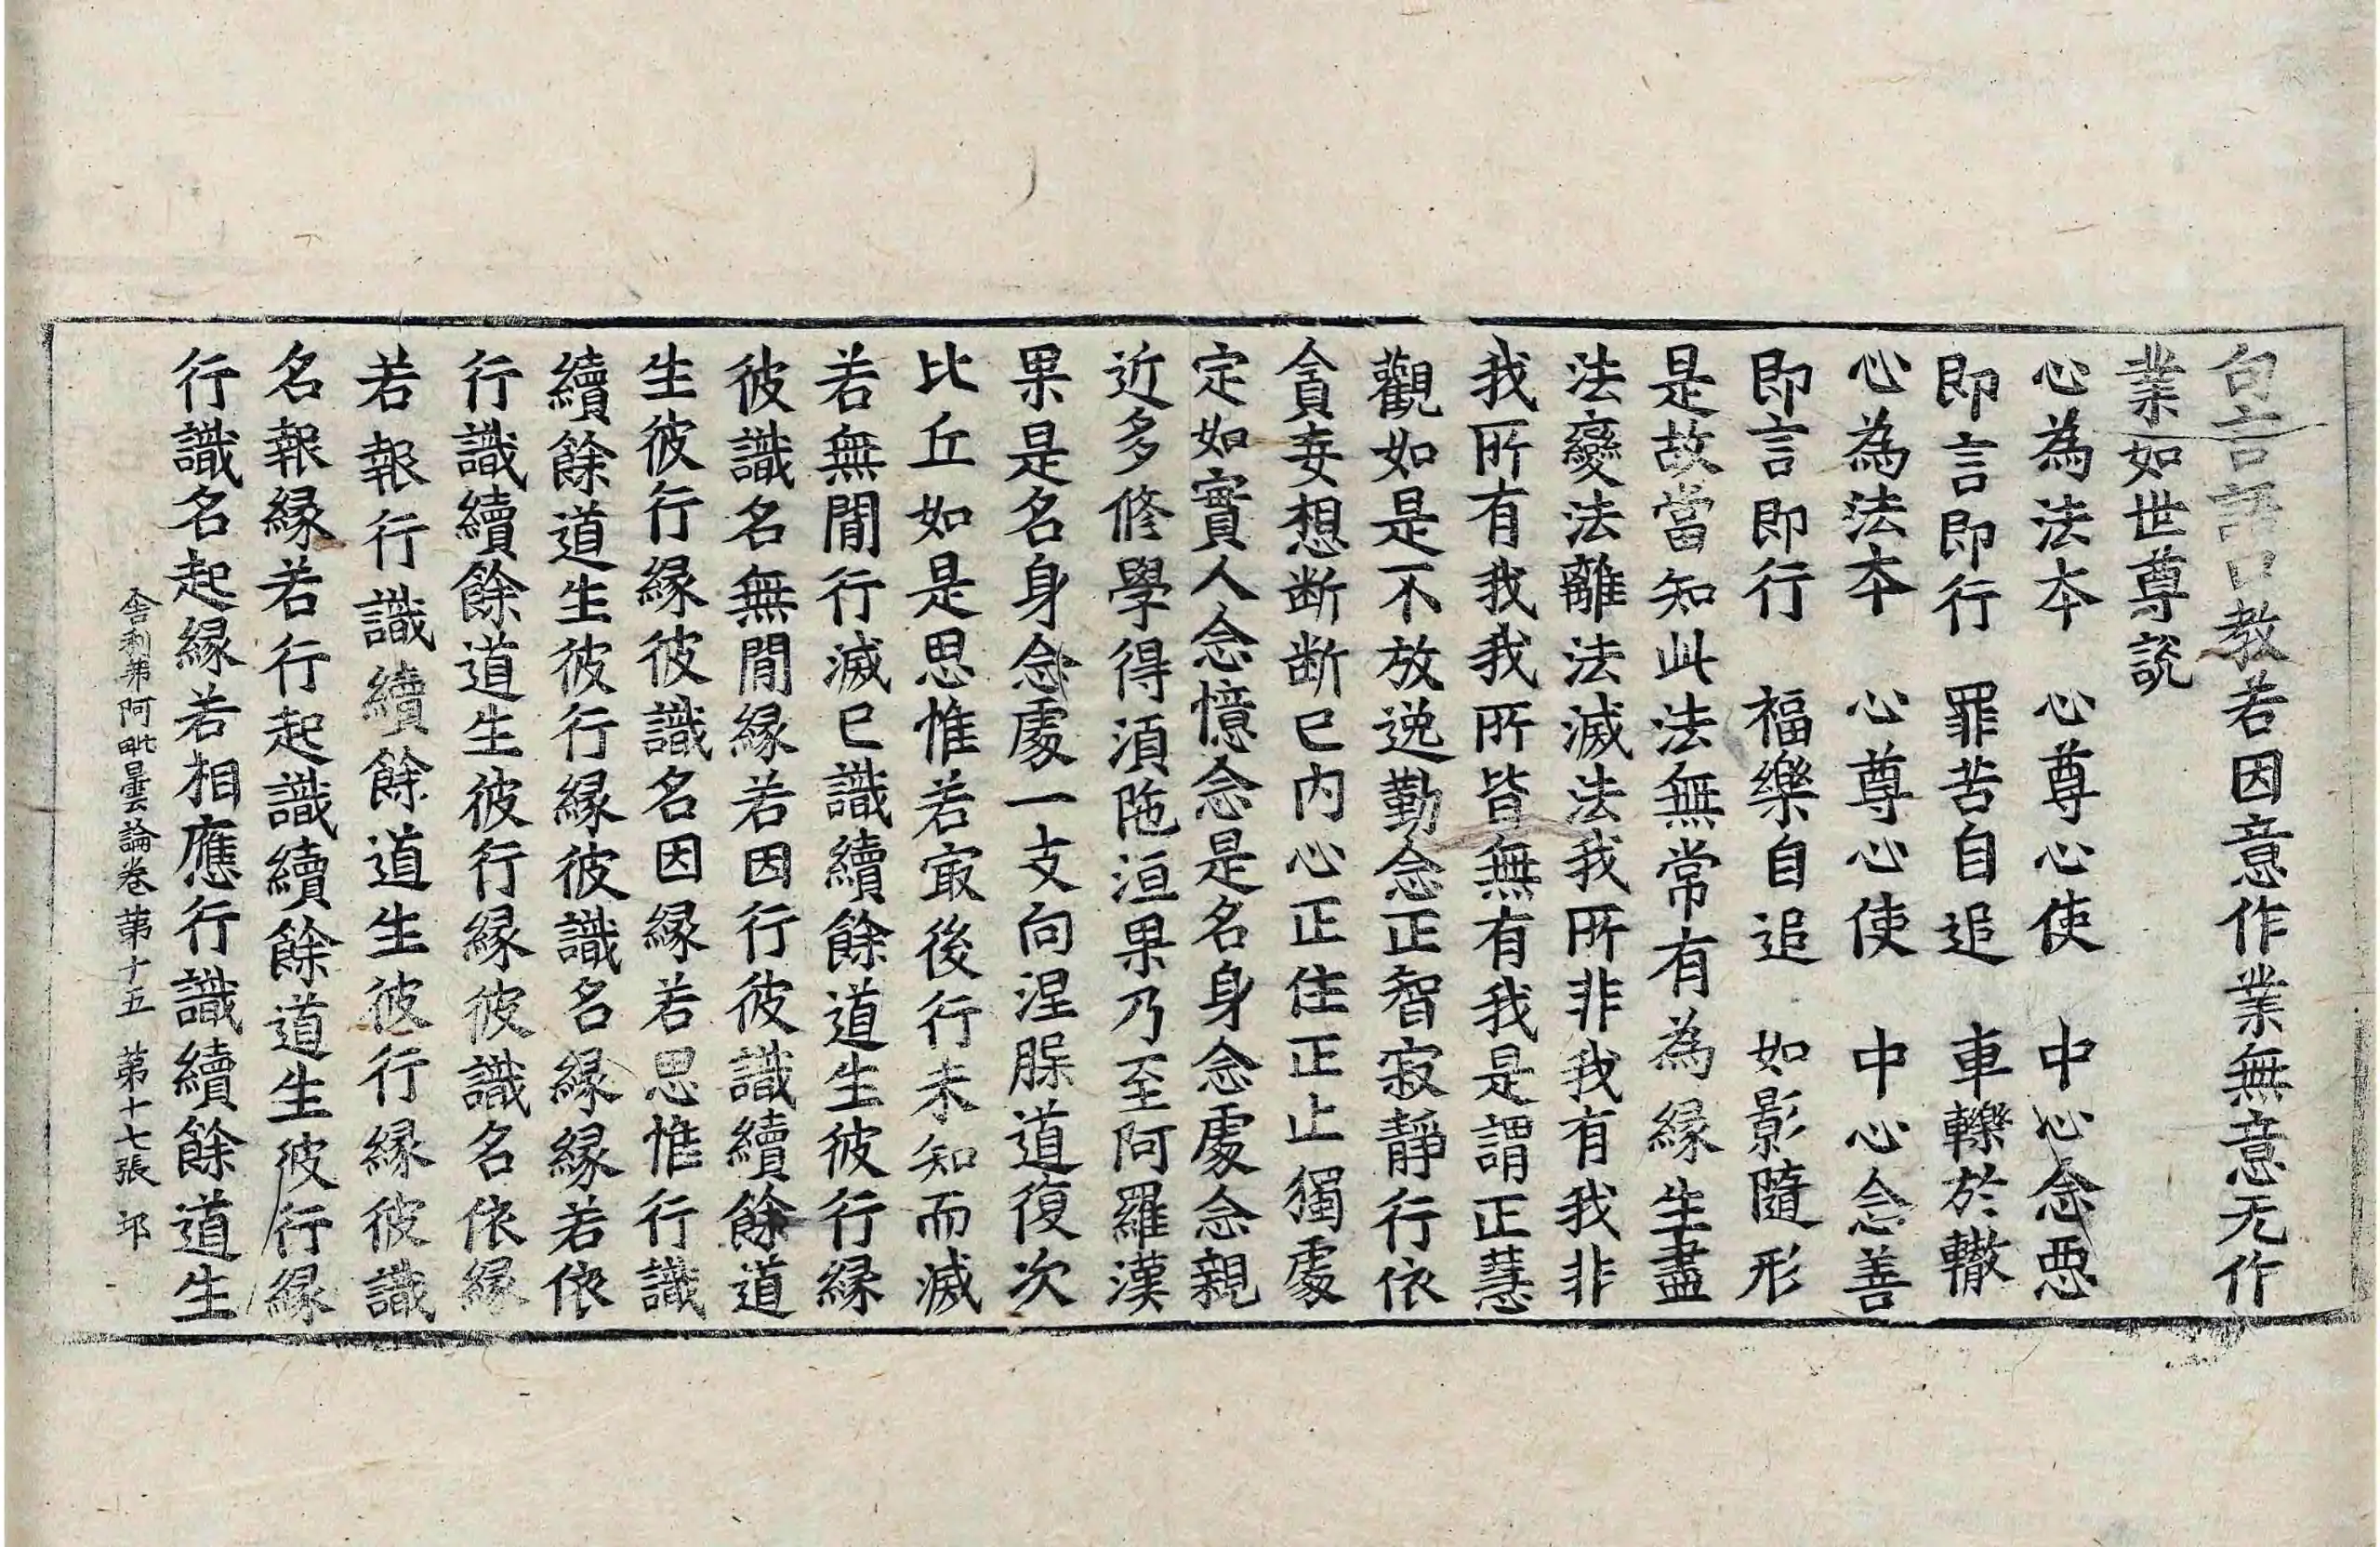 句言語口教若因意作業無意无作
業如世尊説
心為法夲　心尊心使　中心念惡
即言即行　罪苦自追　車轢於轍
心為法夲　心尊心使　中心念善
即言即行　福樂自追　如影隨形
是故當知此法無常有為緣生盡
法變法離法滅法我所非我有我非
我所有我我所皆無有我是謂正慧
觀如是不放逸勤念正智寂靜行依
貪妄想断断已内心正住正止獨處
定如實人念憶念是名身念處念親
近多修學得湏陁洹果乃至阿羅漢
果是名身念處一支向涅槃道復次
比丘如是思惟若㝡後行未知而滅
若無間行滅已識續餘道生彼行緣
彼識名無間緣若因行彼識續餘道
生彼行緣彼識名因緣若思惟行識
續餘道生彼行緣彼識名緣緣若依
行識續餘道生彼行緣彼識名依緣
若報行識續餘道生彼行緣彼識
名報緣若行起識續餘道生彼行緣
行識名起緣若相應行識續餘道生
舎利弗阿毗曇論卷第十五　第十七張　邙